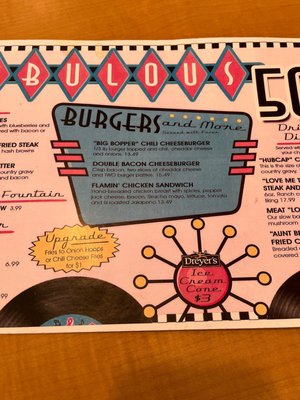 BULOUS
50
BURGERS and More
Served with Fries
"BIG BOPPER" CHILI CHEESEBURGER
1/3 lb burger topped with chili, cheddar cheese
and onions. 13.49
DOUBLE BACON CHEESEBURGER
Crisp bacon, two slices of cheddar cheese
and TWO burger patties. 16.49
FLAMIN' CHICKEN SANDWICH
Hand-breaded chicken breast with spices, pepper
jack cheese, bacon, Siracha mayo, lettuce, tomato
and a toasted Jalapeno 13.49
with blueberries and
ed with bacon or
FRIED STEAK
hash browns
TTER
country gravy
and bacon
Fountain
3.99
6.99
Upgrade
Fries to Onion Hoops
or Chili Cheese Fries
for $1
Dreyer's
Ice
Cream
Cone
$3
Di
"HUBCAP"
This is the s
country grav
"LOVE ME
STEAK
Ranch or
tiking 17.99
MEAT "LO
Our slow
mushroom
"AUNT B
FRIED C
Breaded
covered